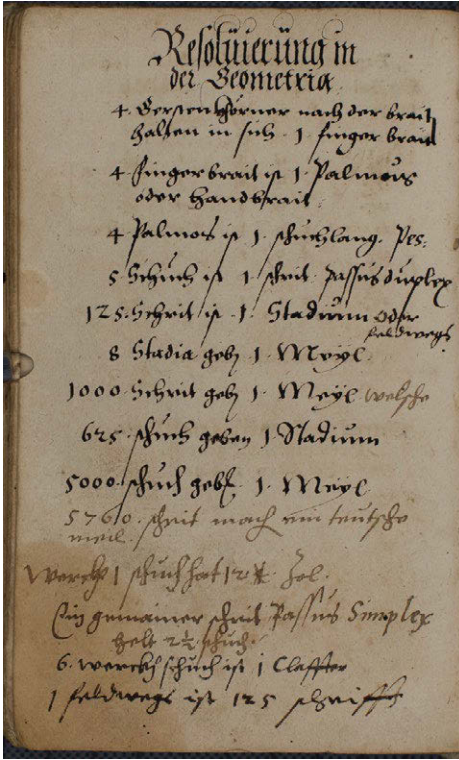 Resoluierung in
der Geometria
4. Gerstenkhörner nach der brait
halten in sich 1 finger brait
4 finger brait ist 1. Palmus
oder handbrait
4 Palmos ist 1. schuchlang. Pes.
5. Schuch ist 1 schrit. Passus duplex
125. Schrit ist 1. Stadium oder
feldwegs
8 Stadia geben 1. Meyl.
1000. Schrit geben 1. Meyl welsche
625. schuch geben 1 Stadium
5000. schuch geben 1. Meyl
5760. schrit mach ein teutsche
meil.
Werckh 1 schuch hat 12 Zol.
Ein gemainer schrit Passus Simplex
helt 2½ schuch.
6. werckh schuch ist 1 Claffter
1 feldwegs ist 125 schritt